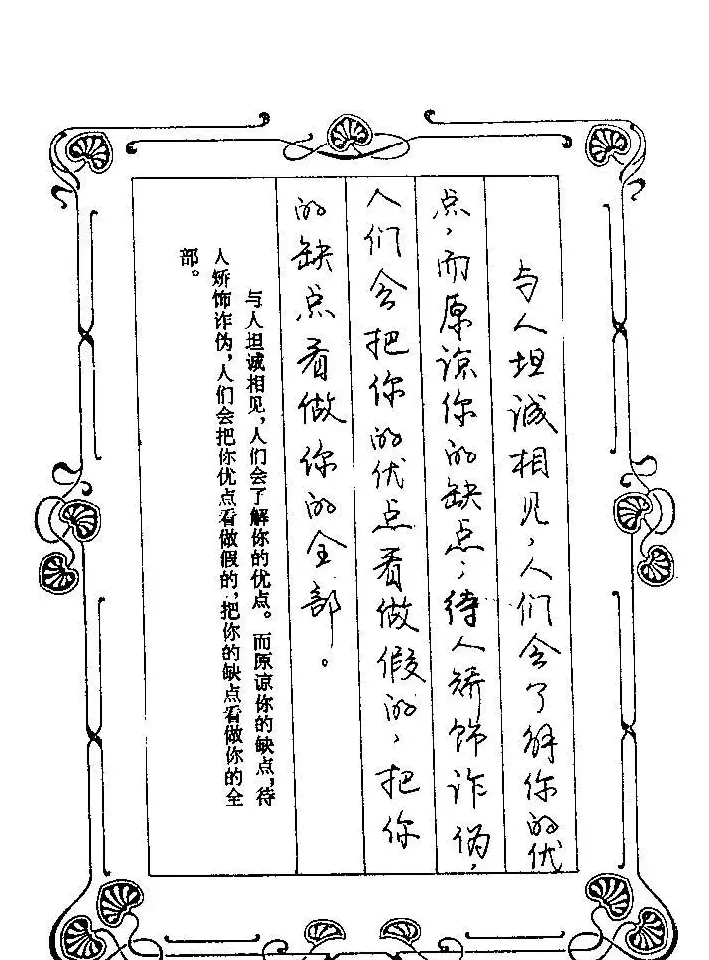 与人坦诚相见，人们会了解你的优
点，而原谅你的缺点；待人矫饰诈伪，
人们会把你的优点看做假的，把你
的缺点看做你的全部。
与人坦诚相见，人们会了解你的优点。而原谅你的缺点，待
人矫饰诈伪，人们会把你优点看做假的，把你的缺点看做你的全
部。